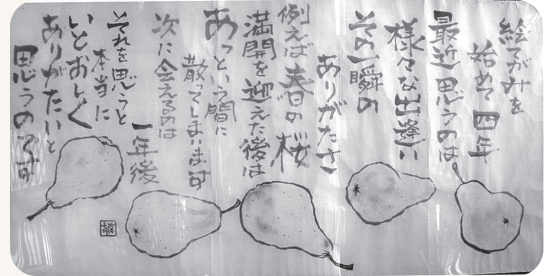 絵てがみを
始めて四年
最近思うのは。
様々な出逢い
その一瞬の
ありがたさ
例えば春の桜
満開を迎えた後は
あっという間に
散ってしまいます
次に会えるのは
一年後
それを思うと
本当に
いとおしく
ありがたいと
思うのです